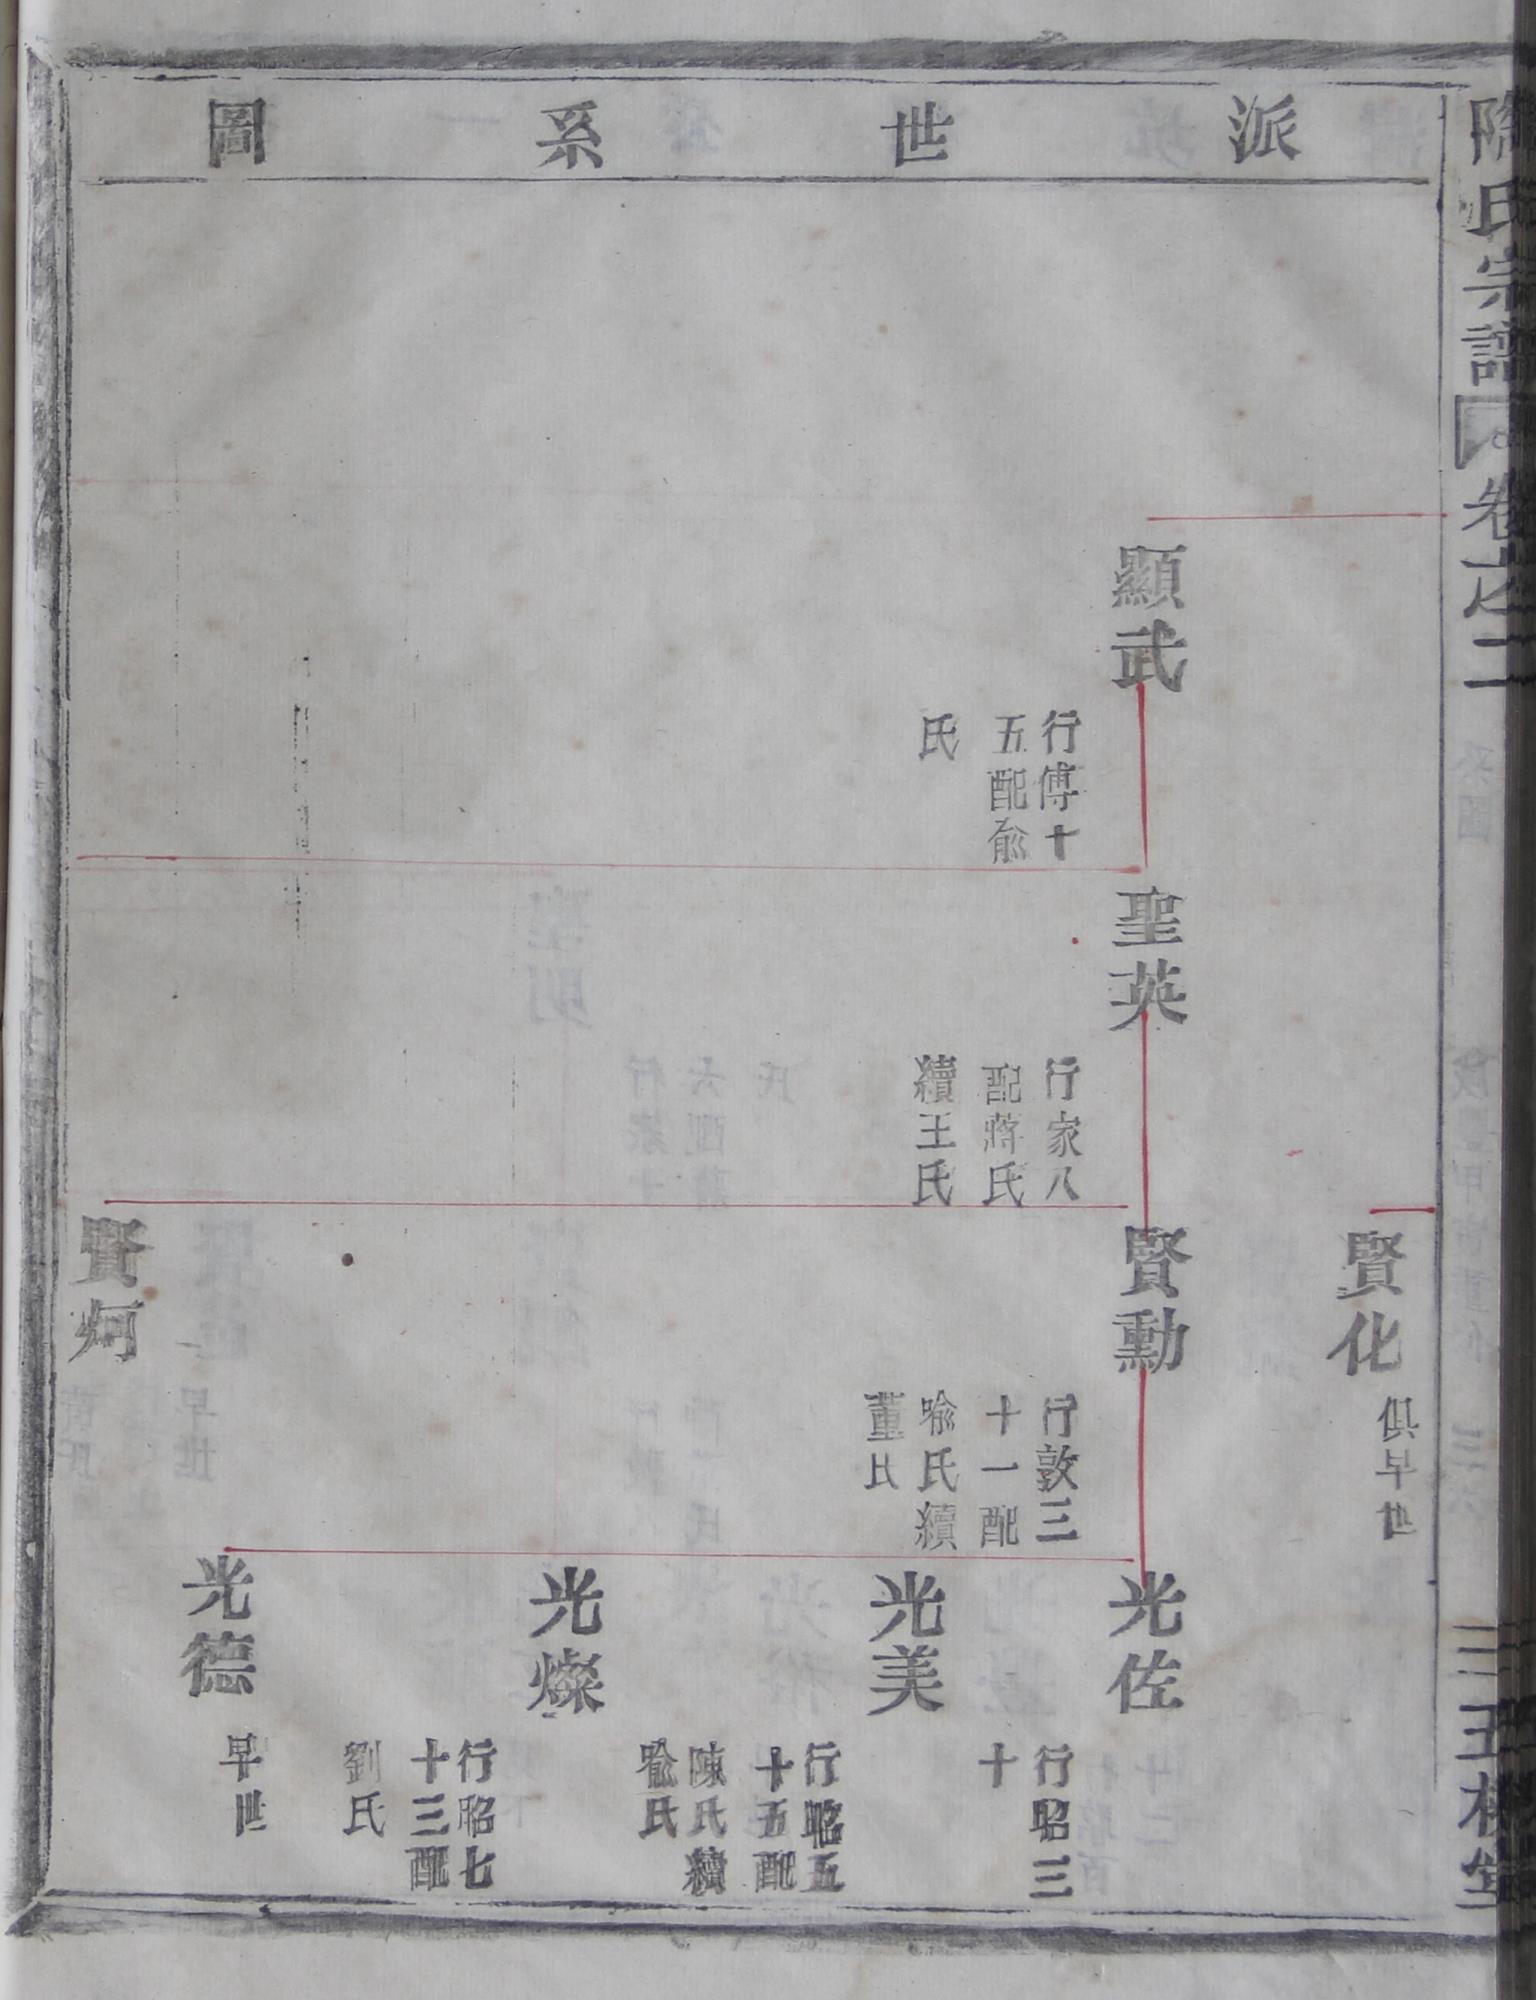 氏宗譜 卷之二
派世系圖
顯武
行傅十
五配俞
氏
聖英
行家八
配蔣氏
續王氏
賢化
俱早世
賢勳
行敦三
十一配
喻氏續
董氏
賢炣
光佐
行昭三
十
光美
行昭五
十五配
陳氏續
喻氏
光燦
行昭七
十三配
劉氏
光德
早世